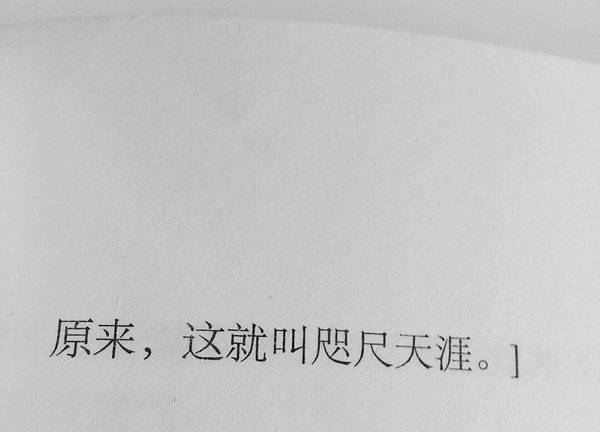 原来，这就叫咫尺天涯。]